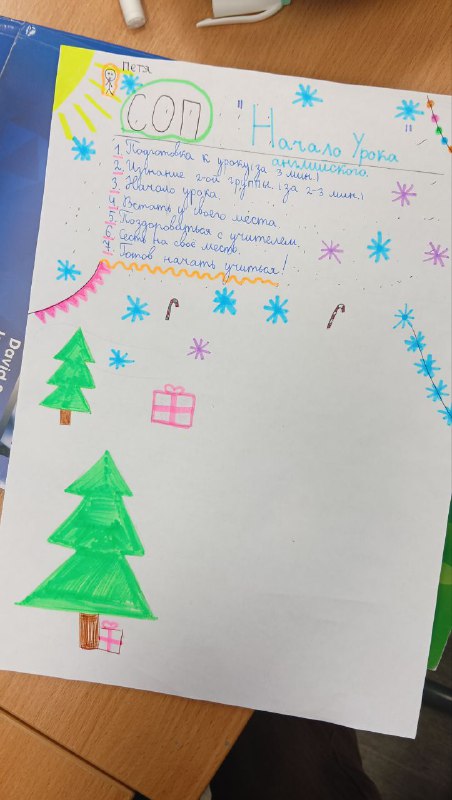 Петя
СОП
"Начало Урока
английского"
1. Подготовка к уроку (за 3 мин.)
2. Изгнание 2-ой группы. (за 2-3 мин.)
3. Начало урока.
4. Встать у своего места.
5. Поздороваться с учителем.
6. Сесть на своё место.
7. Готов начать учиться!
David